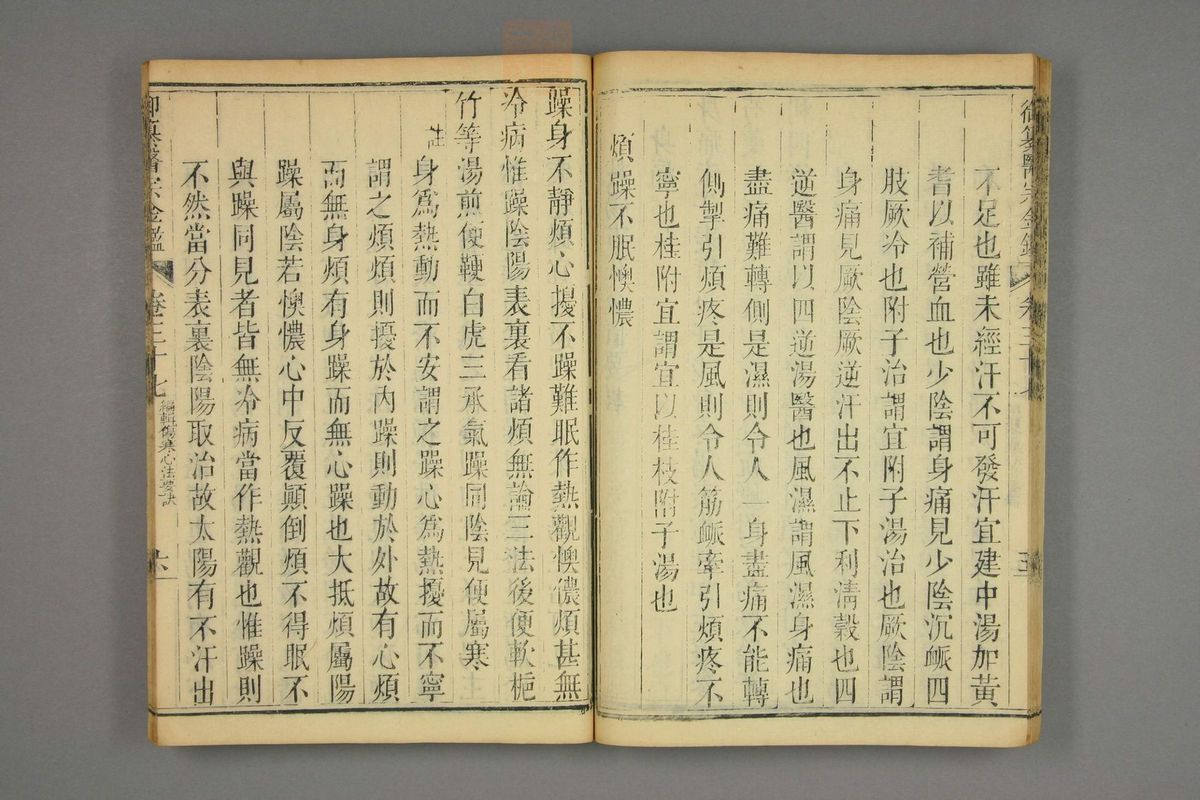 御纂醫宗金鑑 卷三十七 五
不足也雖未經汗不可發汗宜建中湯加黃
耆以補營血也少陰謂身痛見少陰沉脈四
肢厥冷也附子治謂宜附子湯治也厥陰謂
身痛見厥陰厥逆汗出不止下利清穀也四
逆醫謂以四逆湯醫也風濕謂風濕身痛也
盡痛難轉側是濕則令人一身盡痛不能轉
側掣引煩疼是風則令人筋脈牽引煩疼不
寧也桂附宜謂宜以桂枝附子湯也
煩躁不眠懊憹
躁身不靜煩心擾不躁難眠作熱觀懊憹煩甚無
冷病惟躁陰陽表裏看諸煩無論三法後便軟梔
竹等湯煎便鞕白虎三承氣躁同陰見便屬寒
註身爲熱動而不安謂之躁心爲熱擾而不寧
謂之煩煩則擾於內躁則動於外故有心煩
而無身煩有身躁而無心躁也大抵煩屬陽
躁屬陰若懊憹心中反覆顛倒煩不得眠不
與躁同見者皆無冷病當作熱觀也惟躁則
不然當分表裏陰陽取治故太陽有不汗出
御纂醫宗金鑑 卷三十七 編輯傷寒心法要訣 六